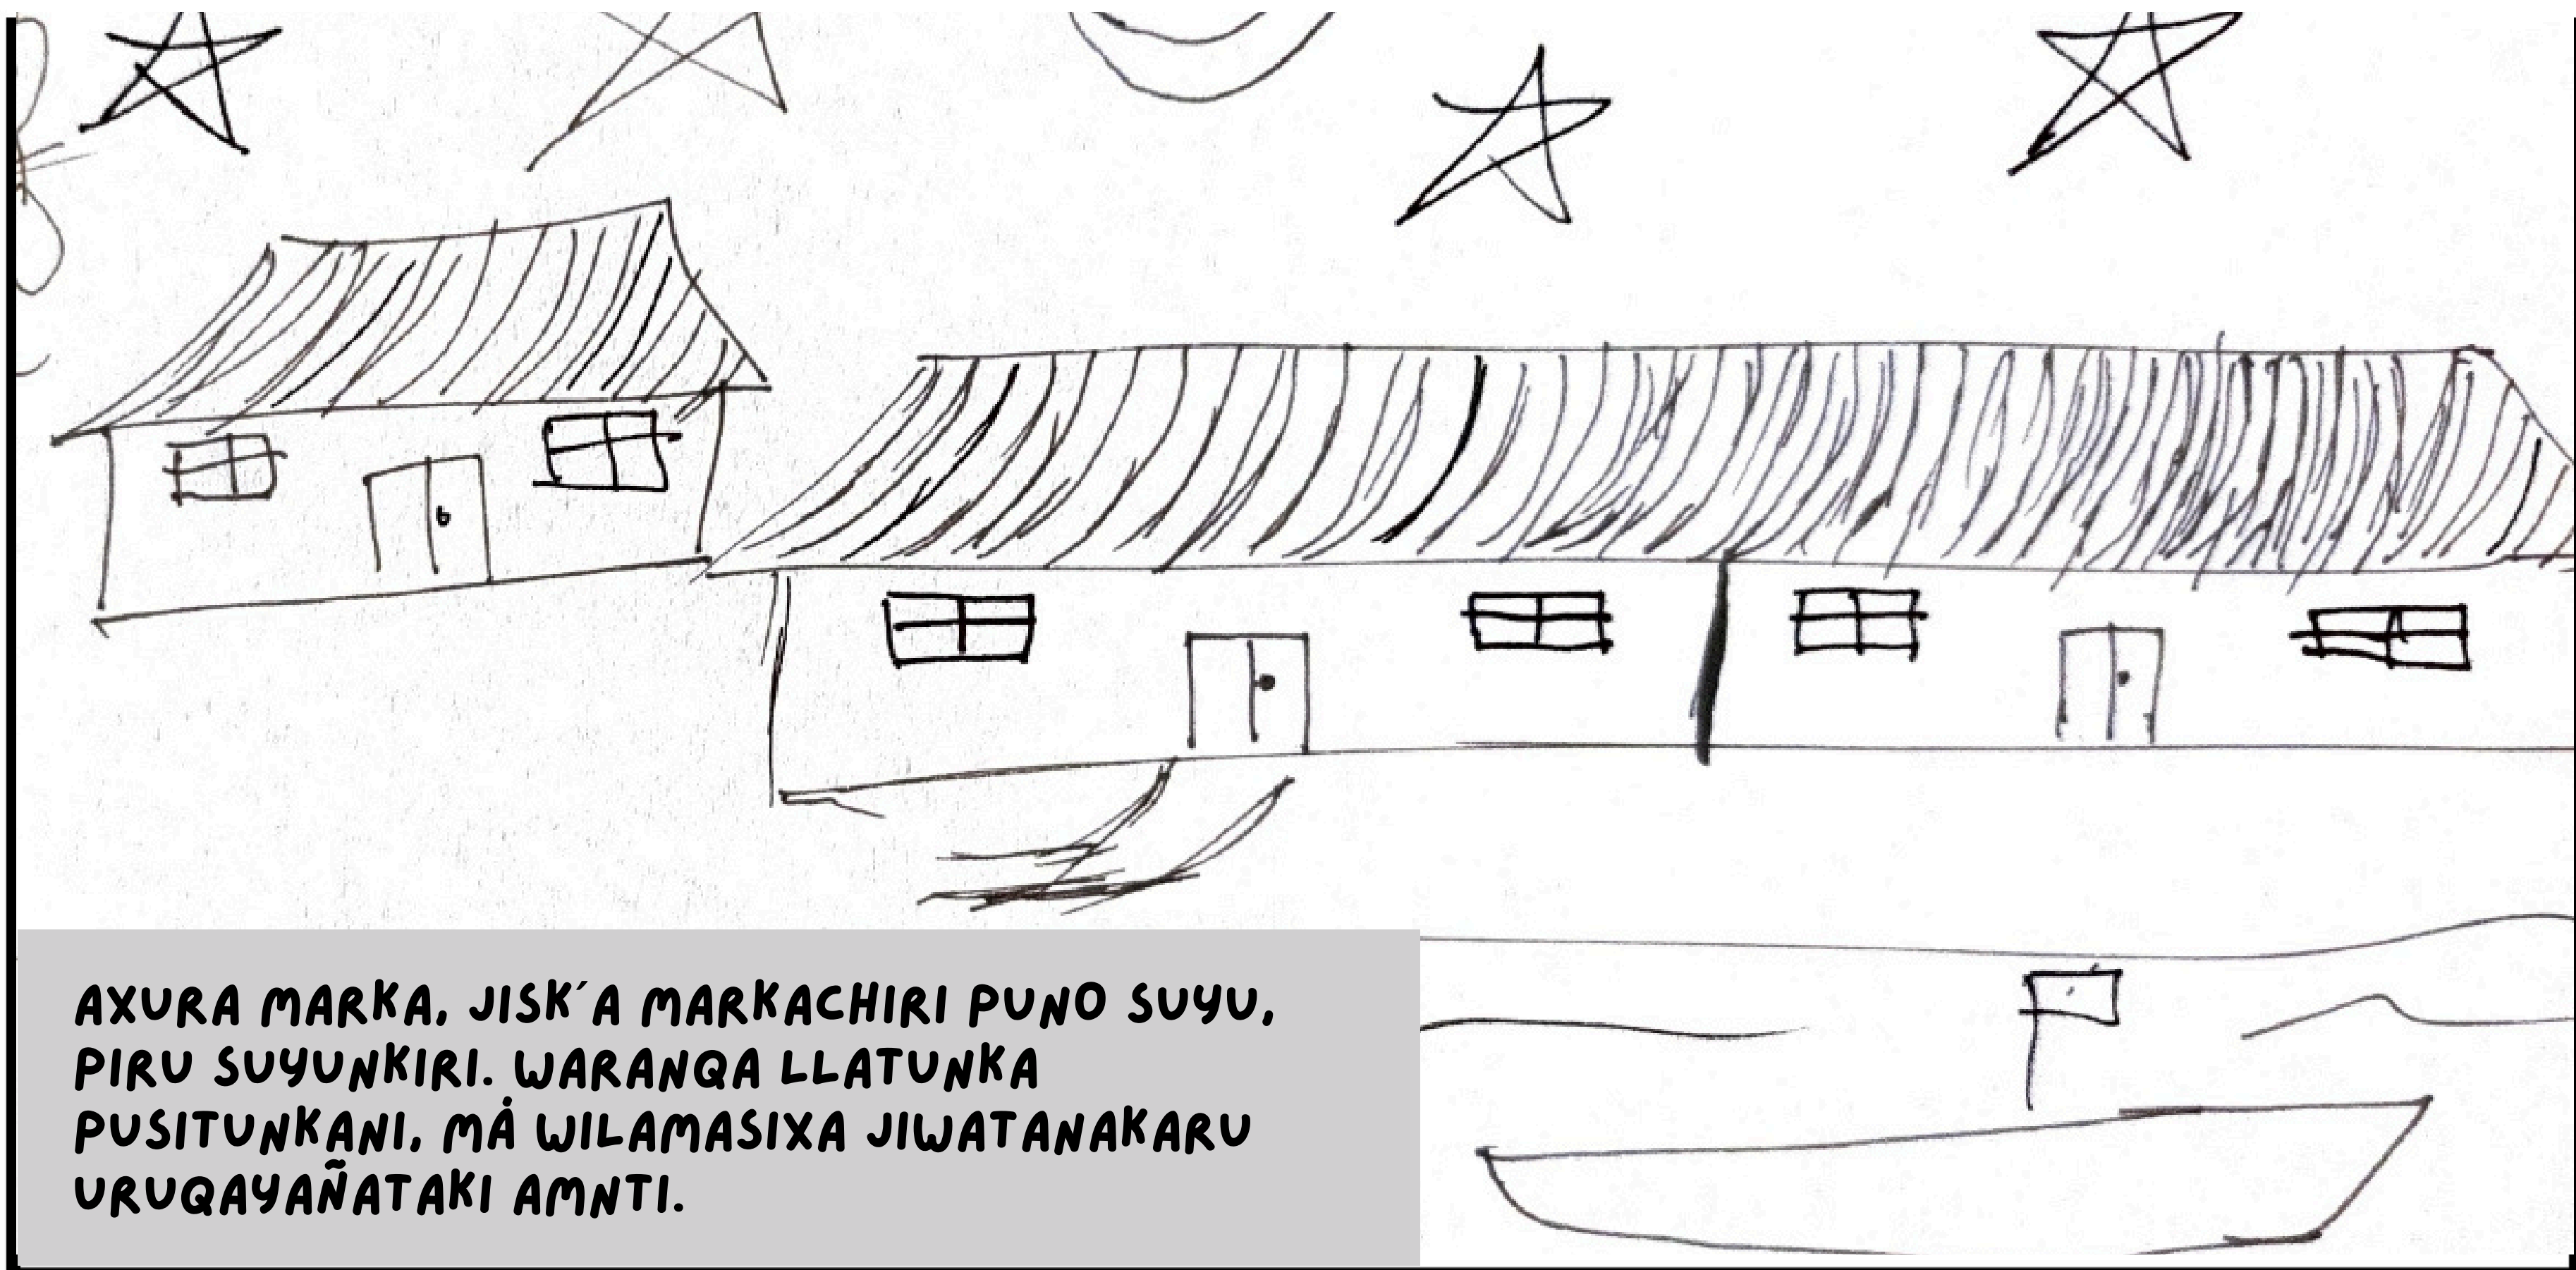 AXURA MARKA, JISK´A MARKACHIRI PUNO SUYU,
PIRU SUYUNKIRI. WARANQA LLATUNKA
PUSITUNKANI, MȦ WILAMASIXA JIWATANAKARU
URUQAYAÑATAKI AMNTI.